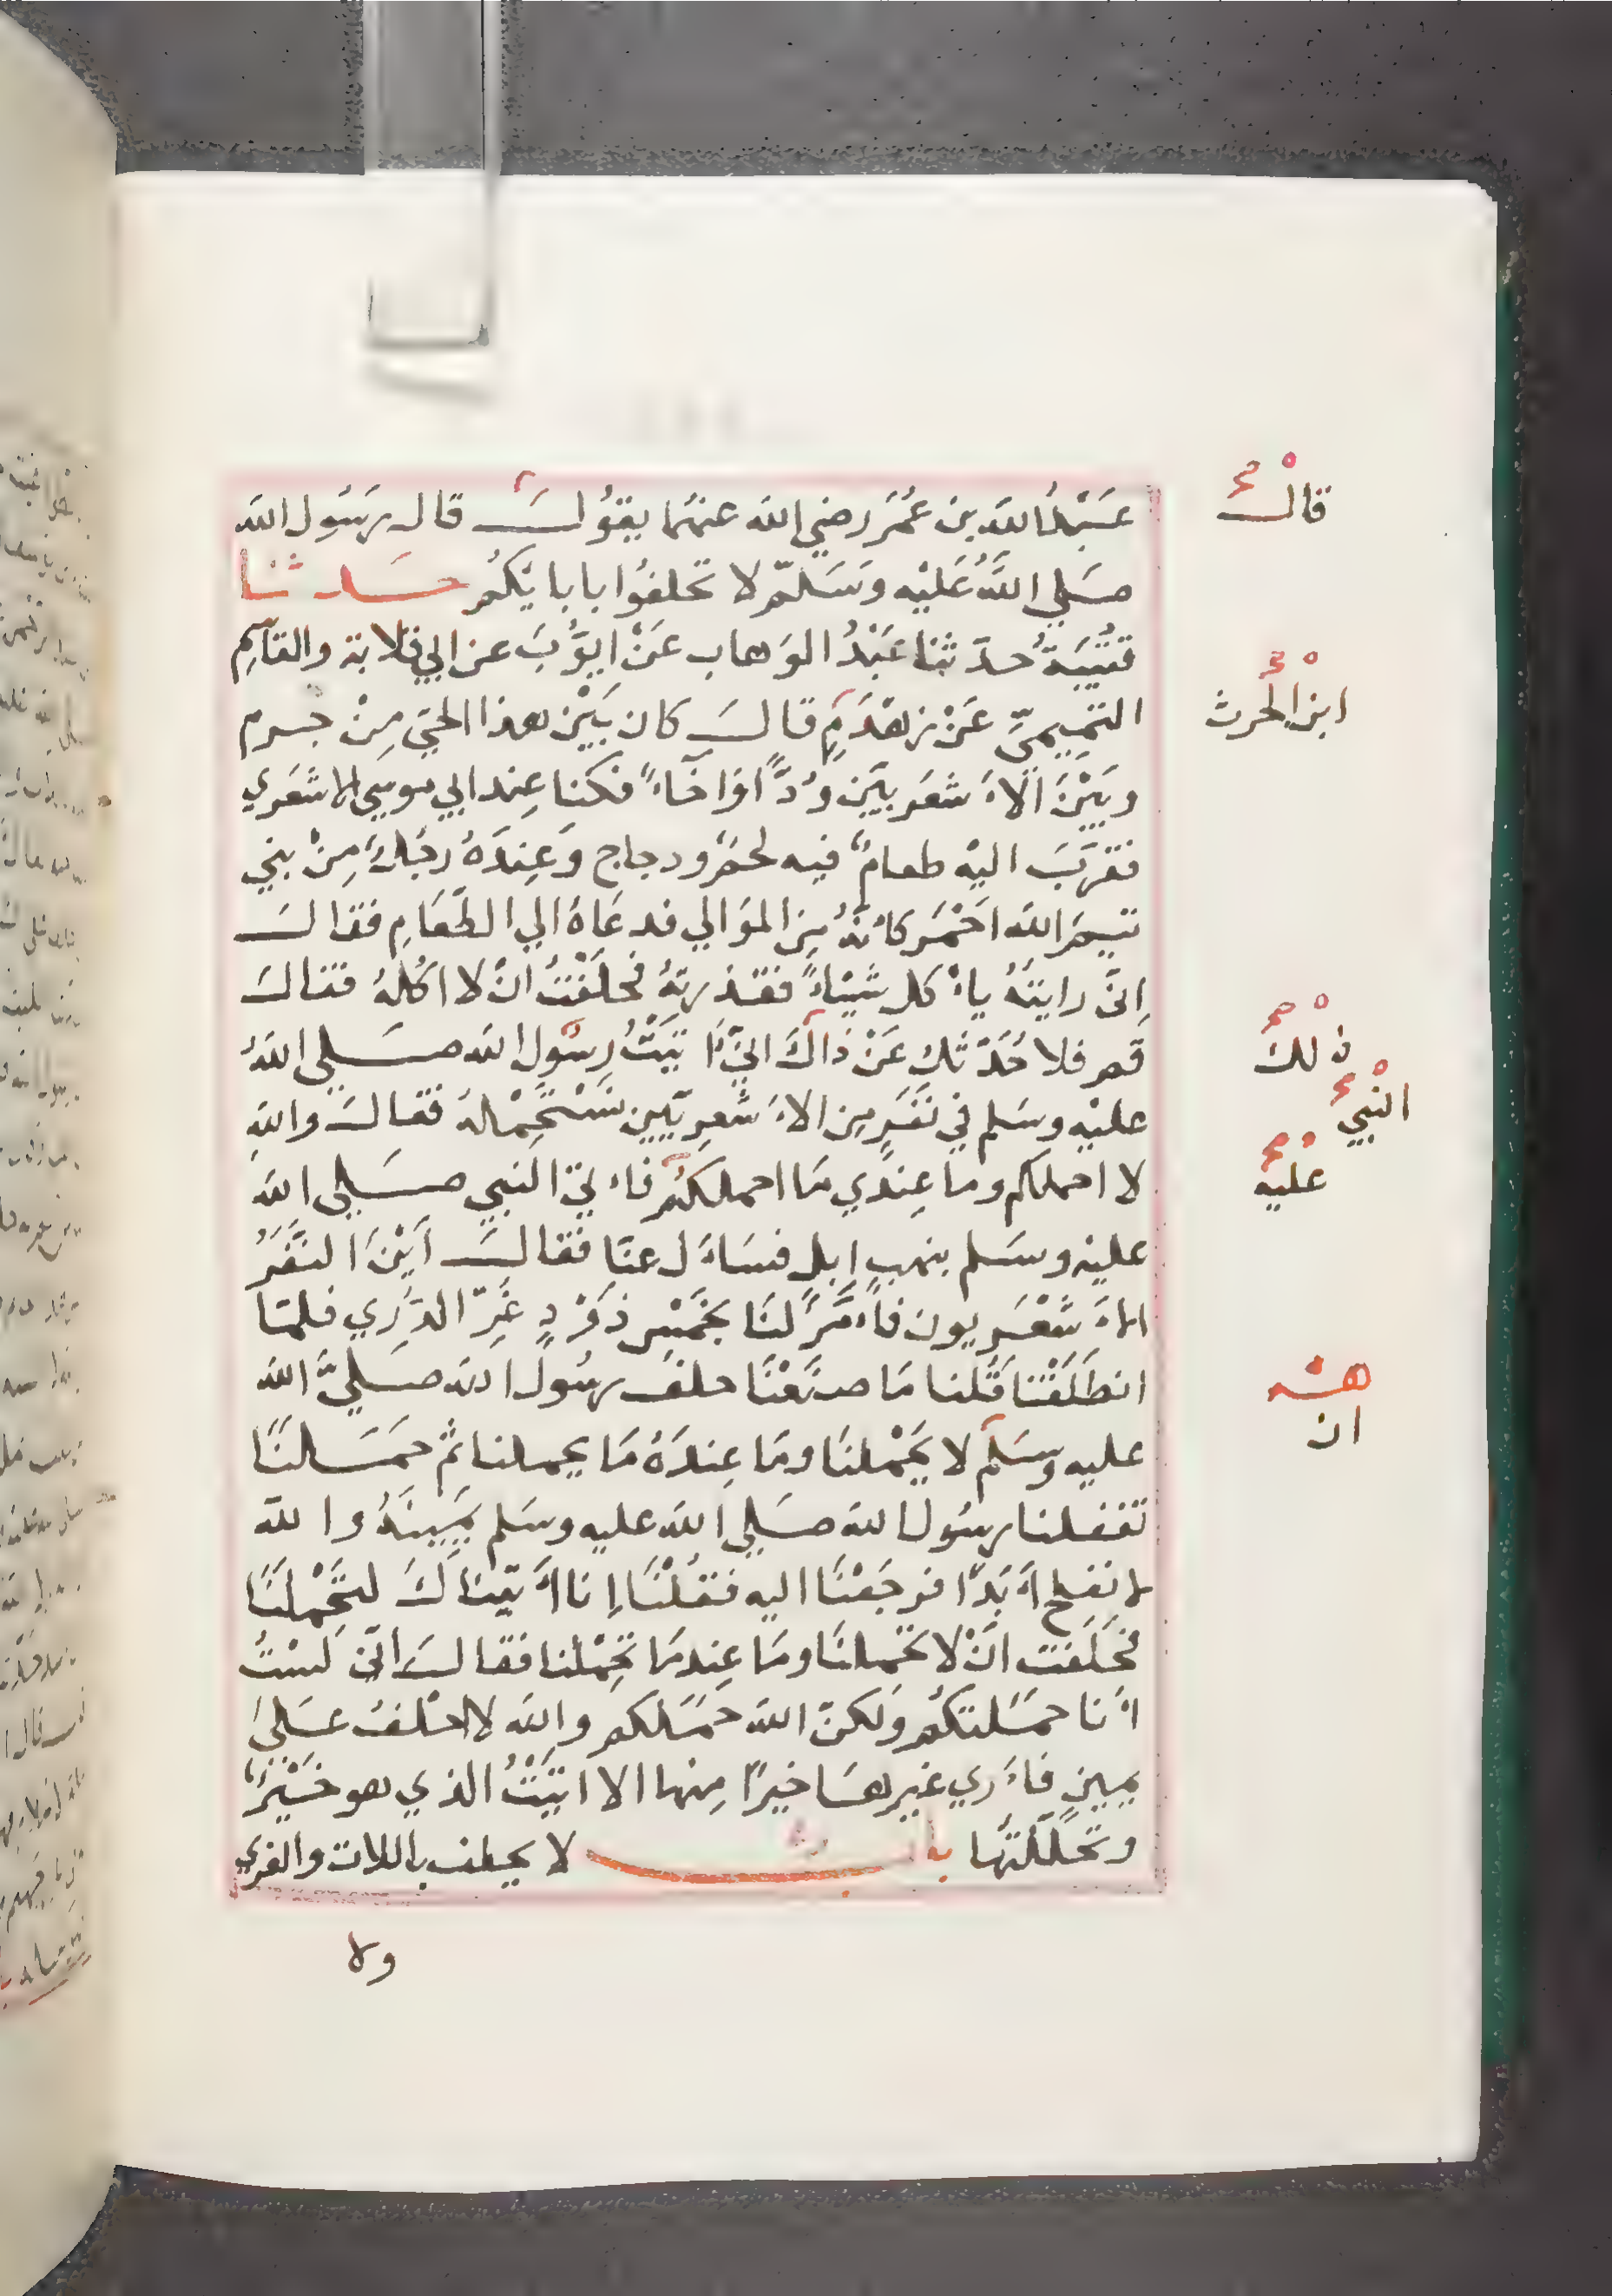 عَبْدُ الله بن عُمَرَ رضي الله عنهُما يقوُلَ قال رسَوُل الله
صَلي اللَّهُ عَلَيْه وَسَلمّ لا تحلفوُا بابايكُم حدثنا
قتُيَبَةُ حدّثنا عَبْدُ الوَهاب عَنْ ايوُّبَ عن ابي قلابة والقاسِم
التمِيميّ عَنْ زهْدَمٍ قالَ كان بَيْن هذا الحيّ مِنْ جرم
وبَيْنَ الاَشعَريّين وُدٌّ اوَاخَآءً فكنا عِند ابي موسي الاشعَري
فقرّبَ اليْه طعامٌ فيه لحمُ ودجاج وَعِندَهُ رجَلٌ مِنْ بني
تيمَ الله احْمَر كانهُ مِن الموَالي فدعَاهُ الي الطّعَامِ فقالَ
اِنّي رايتهُ ياءْكل شَيْاءً فقذرتهُ فحلَفْتُ انْ لا اكُلهُ فقالَ
قم فلاحُدّثك عَنْ ذاكَ انيّ اتيَتُْ رسُول الله صَلي اللهُ
عليْه وسَلم في نفَرٍ مِن الاءَشعِريّيين نسْتَحِمْلهُ فقالَ واللهِ
لا احملكم وما عِندِي مَا احملكُمُ فاءتيَ النبي صَلي الله
عليْه وسَلم بنهبِ اِبلٍ فسَاءَل عنّا فقالَ أيْنَ النفَّرَُ
الاءَشعْريون فاءَمَرَ لنَا بخَمْسِ ذَوْدٍ غُرّ الذّرَي فلمّا
انطلَقْنا قُلنا مَا صنَعْنَا حلفَ رسُولُ الله صَليَّ الله
عليه وسَلم لا يَحْملنَا ومَا عِندَهُ مَا يحملنا ثم حمَلنَا
تغفلنا رسوُل الله صَلي الله عليه وسَلم يميِنهُ والله
لا نفلح اَبَدًا فرجَعْنَا اليه فقُلْنَا اِنا اَتيناكَ لتحْملنَا
فحلَفت انْ لا تحملنَا ومَا عِندمَا تحِمْلنا فقالَ انّي لسْتُ
انَا حمَلتكُم وَلكنّ الله حمَلكم واللهِ لا احْلفُ عَلي
يمين فاءَري غيرهَا خيراً مِنها الا اتيَتُْ الذي هو خَيْرٌ
وتحلّلتها باب لا يحلف باللات والعزي
ولا
قالَ
ابن الحرث
ذلكَ
النبيّ
عليْه
هـ
ان